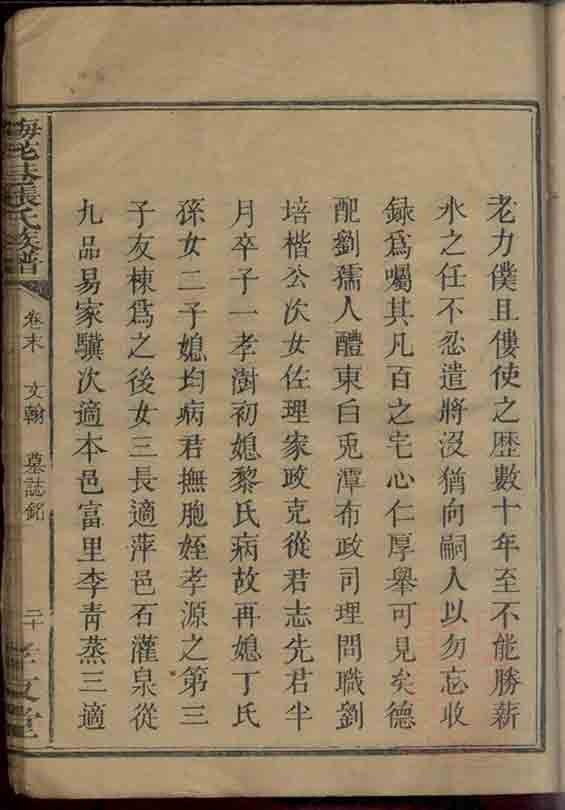 老力僕且僂使之歷數十年至不能勝薪
水之任不忍遣將沒猶向嗣人以勿忘收
録爲囑其凡百之宅心仁厚舉可見矣德
配劉孺人醴東白兎潭布政司理問職劉
培楷公次女佐理家政克從君志先君半
月卒子一孝澍初媳黎氏病故再媳丁氏
孫女二子媳均病君撫胞姪孝源之第三
子友棟爲之後女三長適萍邑石灌泉從
九品易家驥次適本邑富里李青蒸三適
張氏族譜
卷末 文翰 墓誌銘
二十
孝友堂